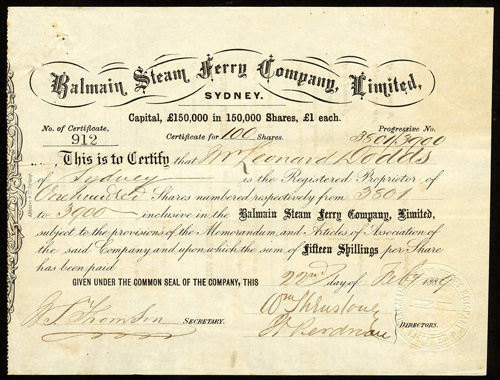 Balmain Steam Ferry Company, Limited,
SYDNEY.
Capital, £150,000 in 150,000 Shares, £1 each.
No. of Certificate, Certificate for 100 Shares. Progressive No.
912 3801/3900
This is to Certify that Mr Leonard Dodds
of Sydney is the Registered Proprietor of
One hundred Shares numbered respectively from 3801
to 3900 inclusive in the Balmain Steam Ferry Company, Limited,
subject to the provisions of the Memorandum and Articles of Association of
the said Company and upon which the sum of Fifteen Shillings per Share
has been paid
GIVEN UNDER THE COMMON SEAL OF THE COMPANY, THIS 22nd day of Feby 1889
Thomson SECRETARY.
Wm
DIRECTORS.